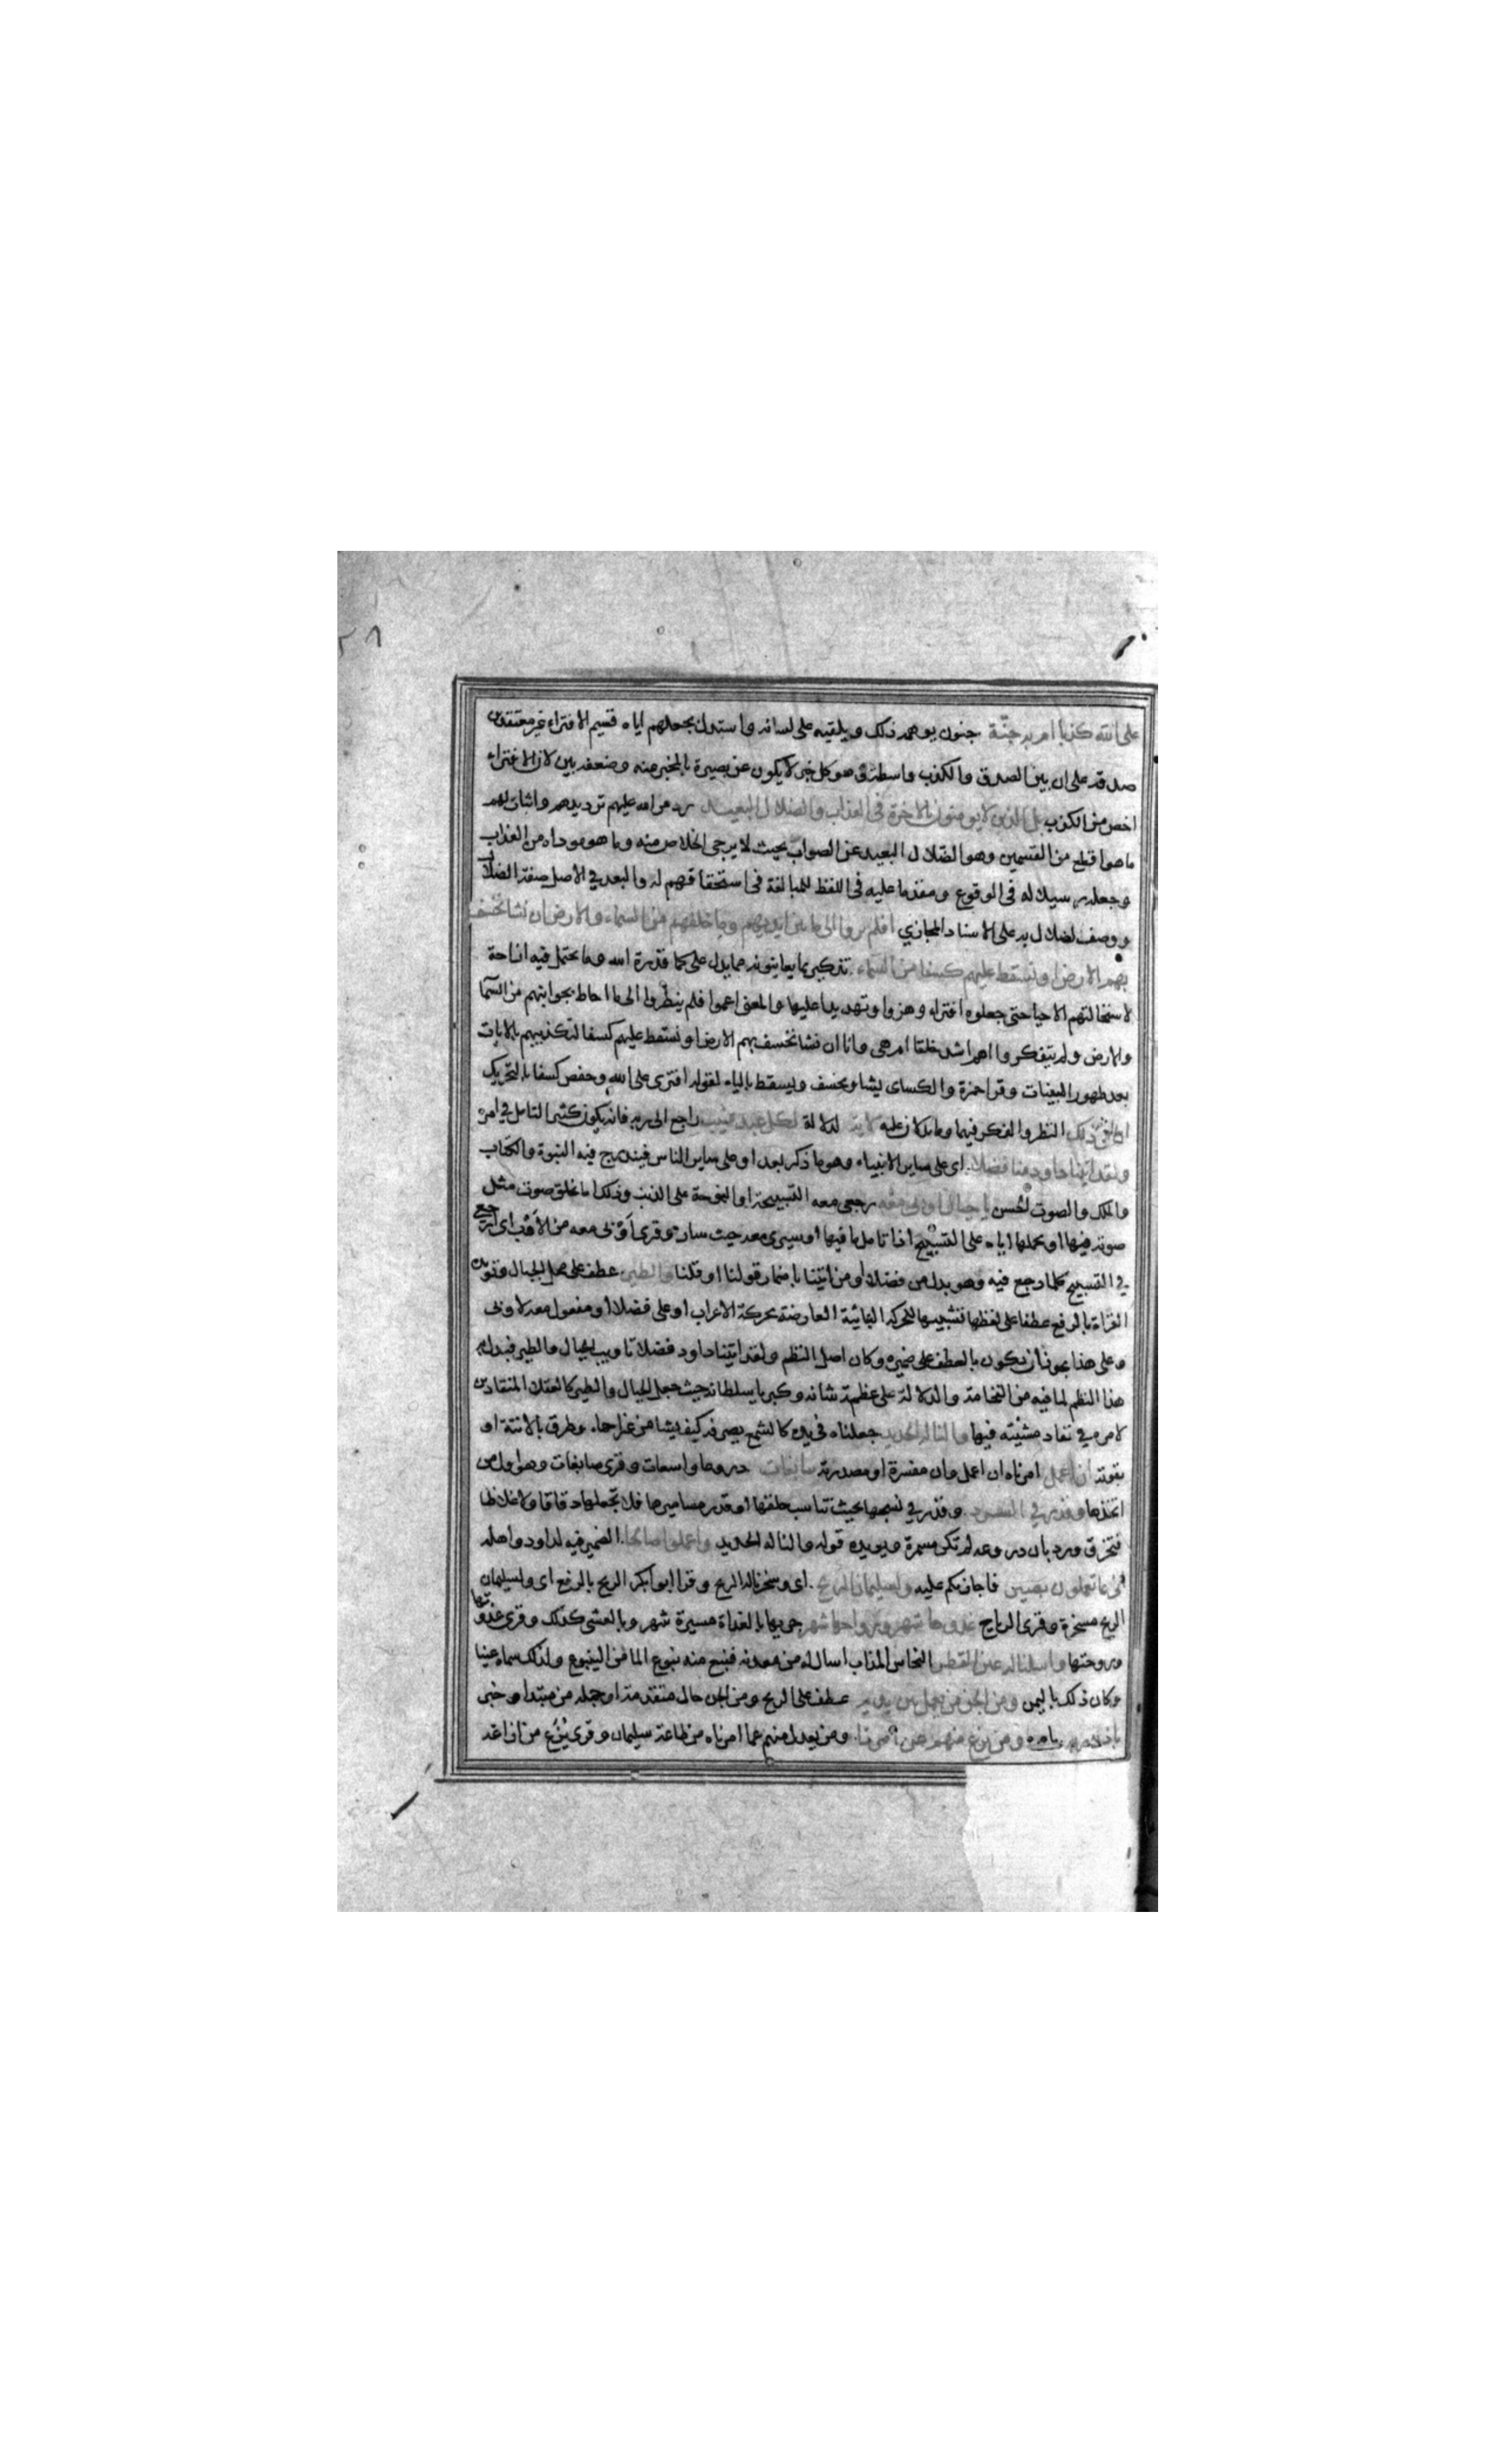 على الله كذبا ام به جنة جنون يوهمه ذلك ويلقيه على لسانه واستدل بجعلهم اياه قسيم الافتراء غير معتقدين
صدقه على ان بين الصدق والكذب واسطة وهو كل خبر لا يكون عن بصيرة بالمخبر عنه وضعفه بين لان الافتراء
اخص من الكذب بل الذين لا يومنون بالاخرة في العذاب والضلال البعيد رد من الله عليهم ترديدهم واثبات لهم
ما هو افظع من القسمين وهو الضلال البعيد عن الصواب بحيث لا يرجى الخلاص منه وما هو موداه من العذاب
وجعله رسيلا له في الوقوع ومقدما عليه في اللفظ للمبالغة في استحقاقهم له والبعد في الاصل صفة الضال
ووصف الضلال به على الاسناد المجازي افلم يروا الى ما بين ايديهم وما خلفهم من السماء والارض ان نشا نخسف
بهم الارض او نسقط عليهم كسفا من السماء تذكير بما يعاينونه مما يدل على كمال قدرة الله وما يحتمل فيه ازاحة
لاستحالتهم الاحيا حتى جعلوه افتراء وهزوا وتهديدا عليها والمعنى اعموا فلم ينظروا الى ما احاط بجوانبهم من السما
والارض ولم يتفكروا اهم اشد خلقا ام هي وانا ان نشا نخسف بهم الارض او نسقط عليهم كسفا لتكذيبهم بالايات
بعد ظهور البينات وقرا حمزة والكساى يشا ويخسف ويسقط بالياء لقوله افترى على الله وحفص كسفا بالتحريك
ان في ذلك النظر والفكر فيهما وما يدلان عليه لاية لدلالة لكل عبد منيب راجع الى ربه فانه يكون كثير التامل في امره
ولقد اتينا داود منا فضلا اى على ساير الانبياء وهو ما ذكر بعد او على ساير الناس فيندرج فيه النبوة والكتاب
والملك والصوت الحسن يا جبال اوبي معه رجعى معه التسبيحة او النوحة على الذنب وذلك اما بخلق صوت مثل
صوته فيها او بحملها اياه على التسبيح اذا تامل ما فيها او سيرى معه حيث سار وقرى اوبى معه من الاوب اى ارجعي
في التسبيح كلما رجع فيه وهو بدل من فضلا او من اتينا باضمار قولنا او قلنا والطير عطف على محل الجبال ويويده
القراة بالرفع عطفا على لفظها تشبيها للحركة البنائية العارضة بحركة الاعراب او على فضلا او مفعول معه لاوبى
وعلى هذا يجوز ان يكون بالعطف على ضميره وكان اصل النظم ولقد اتينا داود فضلا تاويب الجبال والطير فبدل به
هذا النظم لما فيه من الفخامة والدلالة على عظمة شانه وكبرياء سلطانه حيث جعل الجبال والطير كالعقلا المنقادين
لامره في نفاد مشيته فيها والنا له الحديد جعلناه في يده كالشمع يصرفه كيف يشا من غير احماء وطرق بالانته او
بقوته ان اعمل امرناه ان اعمل وان مفسرة او مصدرية سابغات دروعا واسعات وقرى صابغات وهو اول من
اتخذها وقدر في السرد وقدر في نسجها بحيث تناسب حلقها او قدر مساميرها فلا تجعلها دقاقا ولا غلاظا
فتخرق ورد بان دروعه لم تكن مسمرة ويويده قوله والنا له الحديد واعملوا صالحا الضمير فيه لداود واهله
انى بما تعملون بصير فاجازيكم عليه ولسليمان الريح اى وسخرنا له الريح وقرا ابو بكر الريح بالرفع اى ولسليمان
الريح مسخرة وقرى الرياح غدوها شهر ورواحها شهر جريها بالغداة مسيرة شهر وبالعشى كذلك وقرى غدوتها
وروحتها واسلنا له عين القطر النحاس المذاب اساله له من معدنه فنبع منه نبوع الما من الينبوع ولذلك سماه عينا
وكان ذلك باليمن ومن الجن من يعمل بين يديه عطف على الريح ومن الجن حال متقدمة او جملة من مبتدا وخبر
باذن ربه بامره ومن يزغ منهم عن امرنا ومن يعدل منهم عما امرناه من طاعة سليمان وقرى يزغ من ازاغه